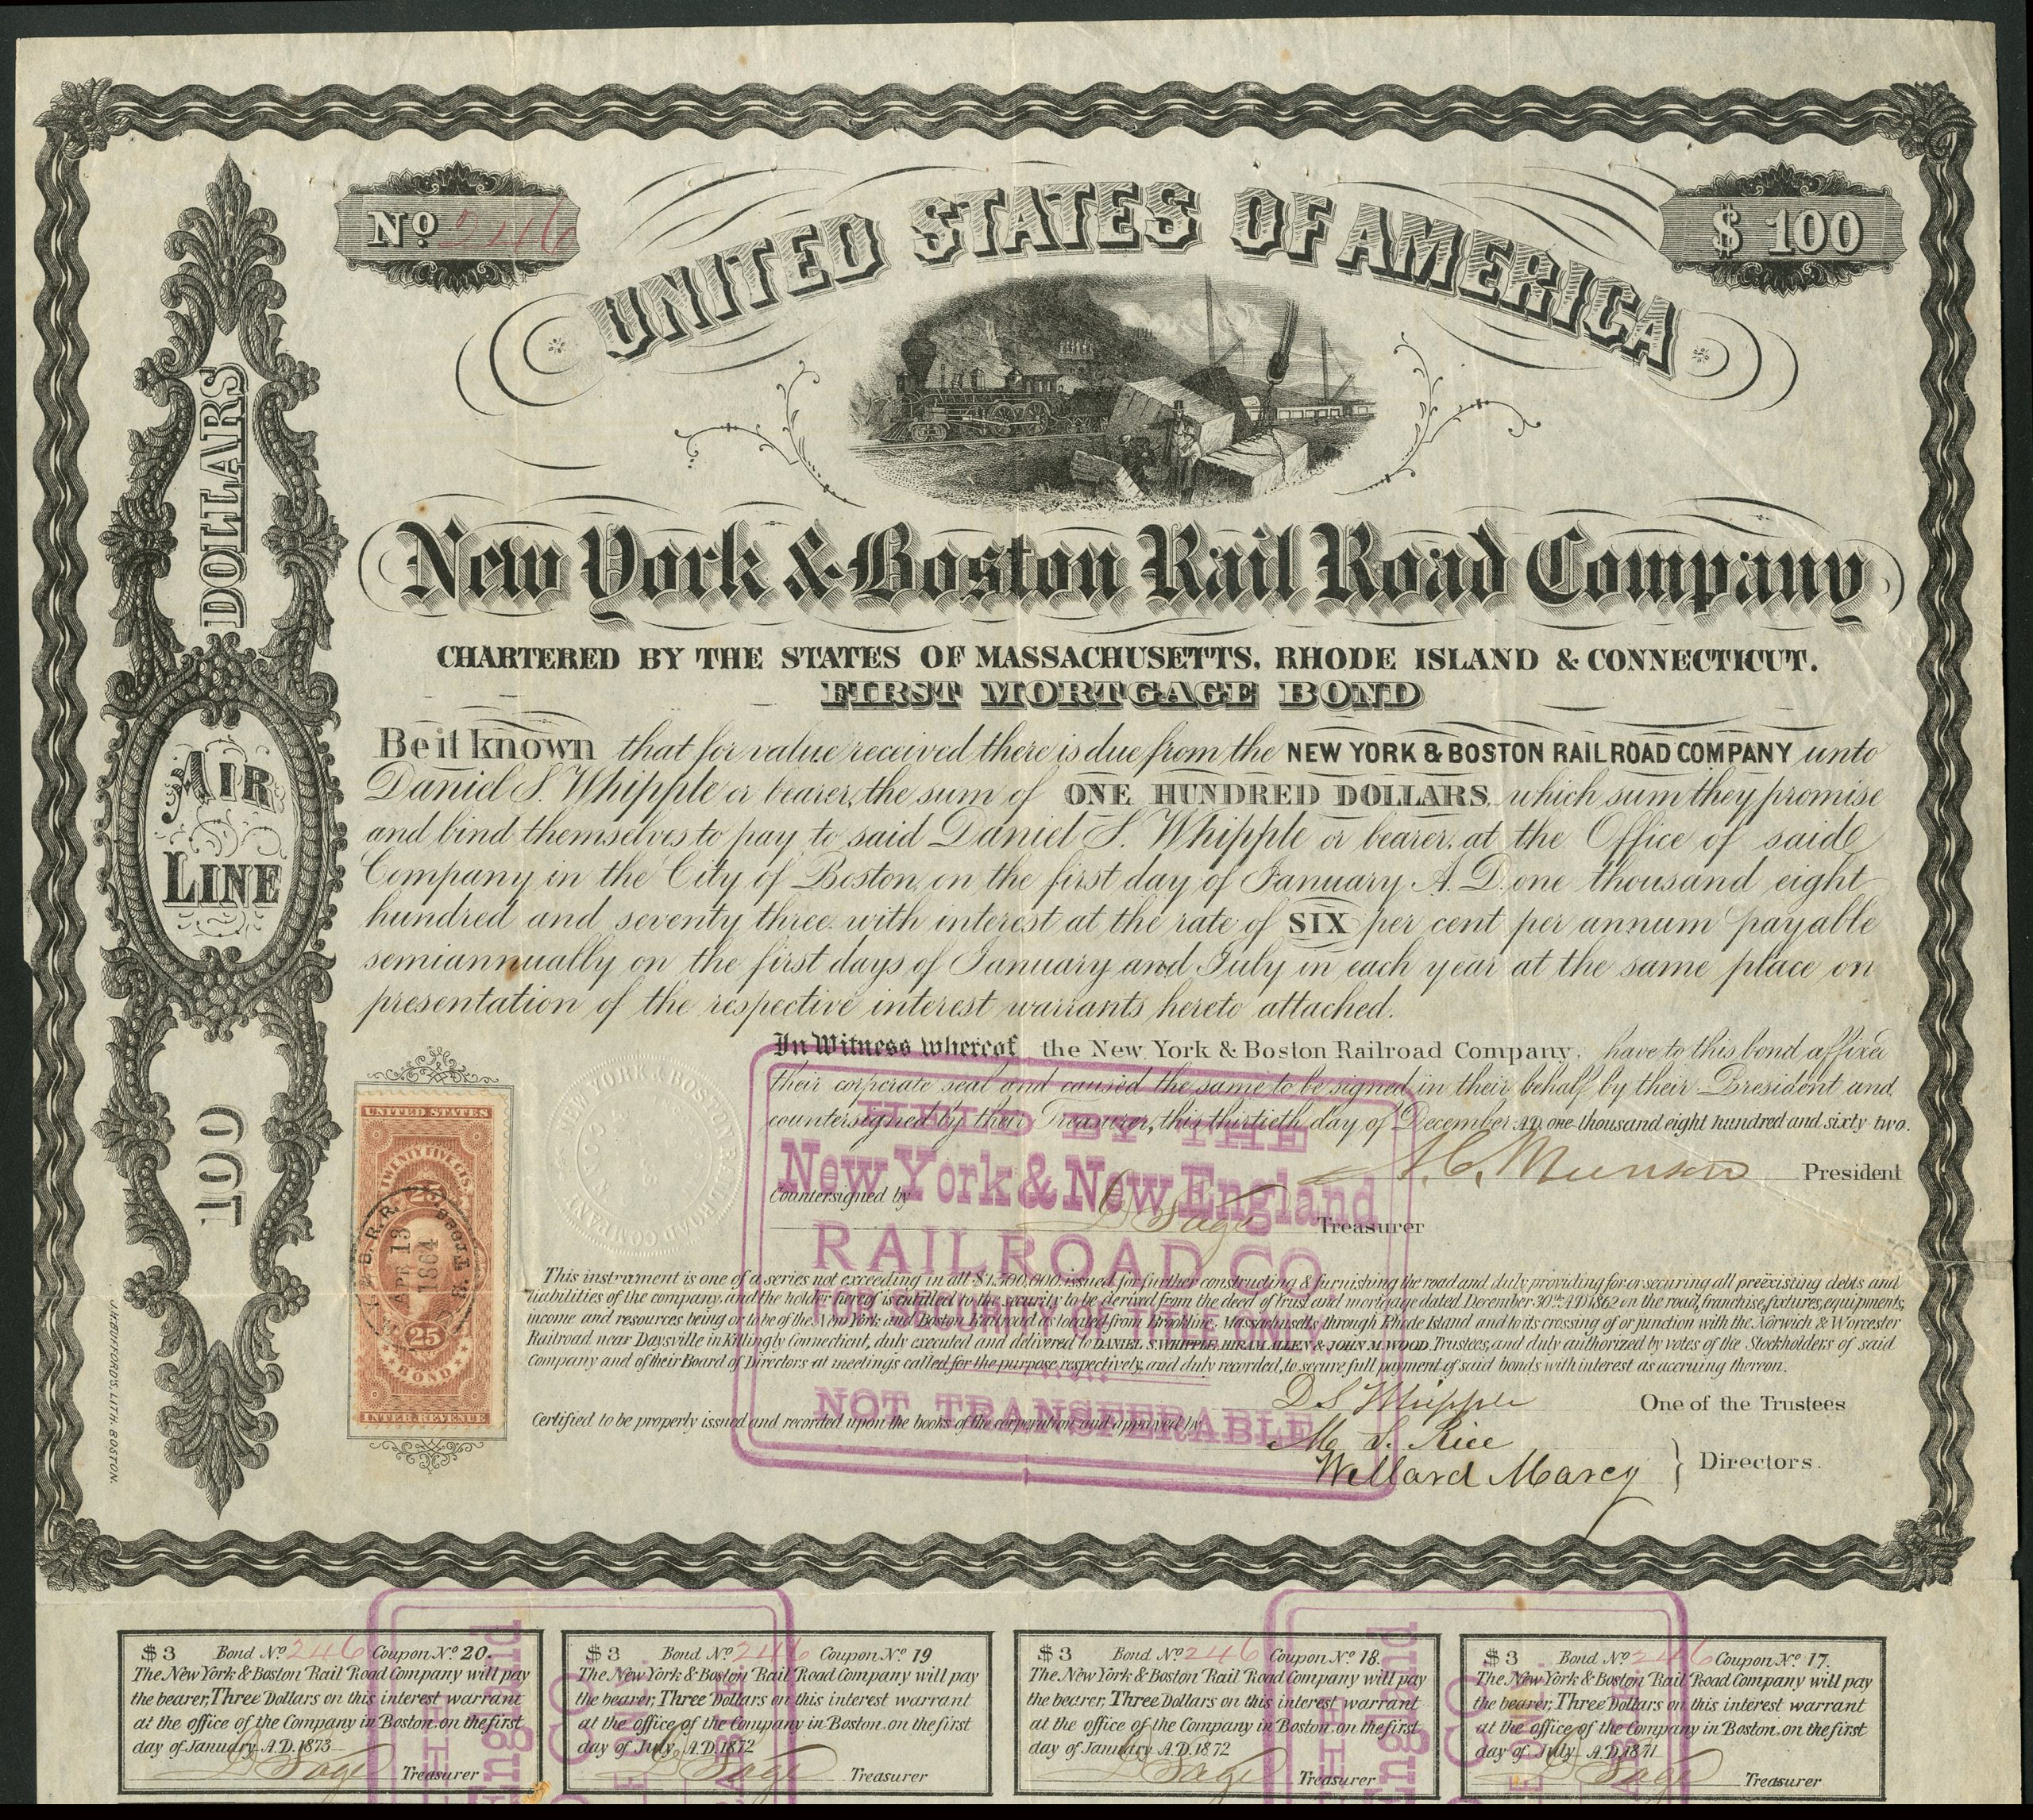 No 246
$ 100
UNITED STATES OF AMERICA
DOLLARS
AIR
LINE
100
New York & Boston Rail Road Company
CHARTERED BY THE STATES OF MASSACHUSETTS, RHODE ISLAND & CONNECTICUT.
FIRST MORTGAGE BOND
Be it known that for value received there is due from the NEW YORK & BOSTON RAILROAD COMPANY unto
Daniel S. Whipple or bearer, the sum of ONE HUNDRED DOLLARS, which sum they promise
and bind themselves to pay to said Daniel S. Whipple or bearer, at the Office of said
Company in the City of Boston, on the first day of January A.D. one thousand eight
hundred and seventy three, with interest at the rate of SIX per cent per annum payable
semiannually on the first days of January and July in each year at the same place on
presentation of the respective interest warrants hereto attached.
In Witness whereof the New York & Boston Railroad Company, have to this bond affixed
their corporate seal and caused the same to be signed in their behalf by their President and
countersigned by their Treasurer, this thirtieth day of December A.D. one thousand eight hundred and sixty two.
A. C. Munson President
Countersigned by
D Sage Treasurer
NEW YORK & BOSTON RAIL ROAD COMPANY
CONN
UNITED STATES
TWENTY FIVE CTS.
25
B. R. R.
APR 13
1864
Treas'r
25
BOND
INTER. REVENUE
HELD BY THE
New York & New England
RAILROAD CO
FOR SECURITY OF TITLE ONLY
NOT TRANSFERABLE
This instrument is one of a series not exceeding in all $1,500,000. issued for further constructing & furnishing the road and duly providing for or securing all preëxisting debts and
liabilities of the company, and the holder hereof is entitled to the security to be derived from the deed of trust and mortgage dated December 30th A.D. 1862 on the road, franchise, fixtures, equipments,
income and resources being or to be of the New York and Boston Railroad as located from Brookline, Massachusetts, through Rhode Island and to its crossing of or junction with the Norwich & Worcester
Railroad near Daysville in Killingly Connecticut, duly executed and delivered to DANIEL S. WHIPPLE, HIRAM ALLEN & JOHN M. WOOD, Trustees, and duly authorized by votes of the Stockholders of said
Company and of their Board of Directors at meetings called for the purpose respectively, and duly recorded, to secure full payment of said bonds with interest as accruing thereon.
D S Whipple One of the Trustees
Certified to be properly issued and recorded upon the books of the corporation and approved by
M. S. Rice
Willard Marcy } Directors.
J.H. BUFFORD'S. LITH. BOSTON.
$3 Bond No 246 Coupon No 20.
The New York & Boston Rail Road Company will pay
the bearer, Three Dollars on this interest warrant
at the office of the Company in Boston. on the first
day of January A.D. 1873
D Sage Treasurer
$3 Bond No 246 Coupon No 19
The New York & Boston Rail Road Company will pay
the bearer, Three Dollars on this interest warrant
at the office of the Company in Boston. on the first
day of July A.D. 1872
D Sage Treasurer
$3 Bond No 246 Coupon No 18.
The New York & Boston Rail Road Company will pay
the bearer, Three Dollars on this interest warrant
at the office of the Company in Boston. on the first
day of January A.D. 1872
D Sage Treasurer
$3 Bond No 246 Coupon No 17.
The New York & Boston Rail Road Company will pay
the bearer, Three Dollars on this interest warrant
at the office of the Company in Boston. on the first
day of July A.D. 1871
D Sage Treasurer